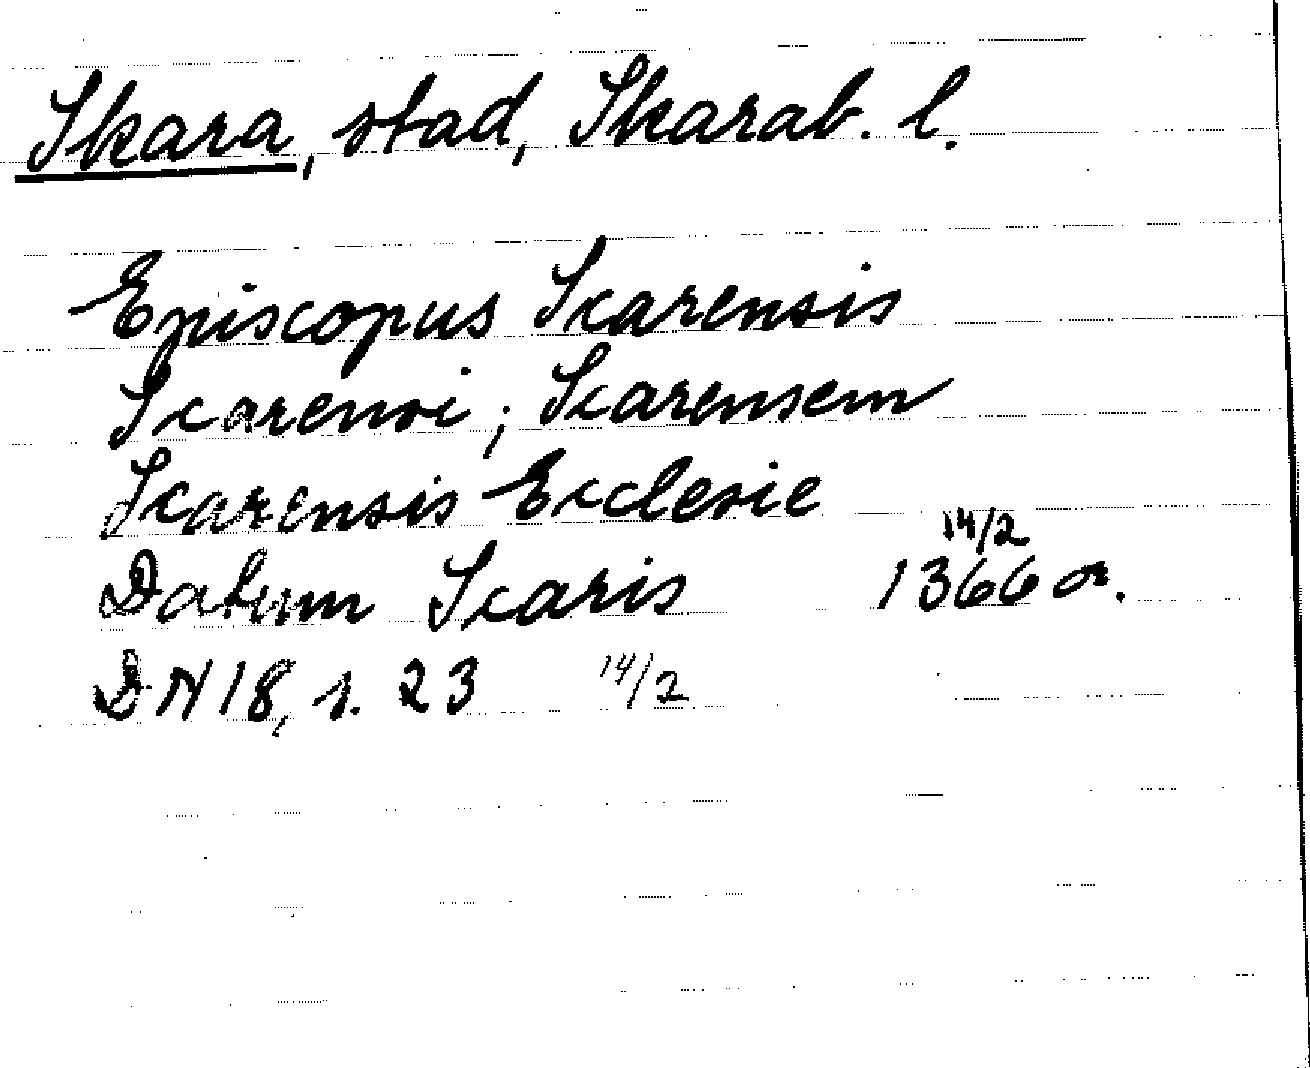 Skara, stad, Skarab. l.
Episcopus Scarensis
Scarensi; Scarensem
Scarensis Ecclesie
14/2
Datum Scaris 1366 or.
DN 18, s. 23 14/2